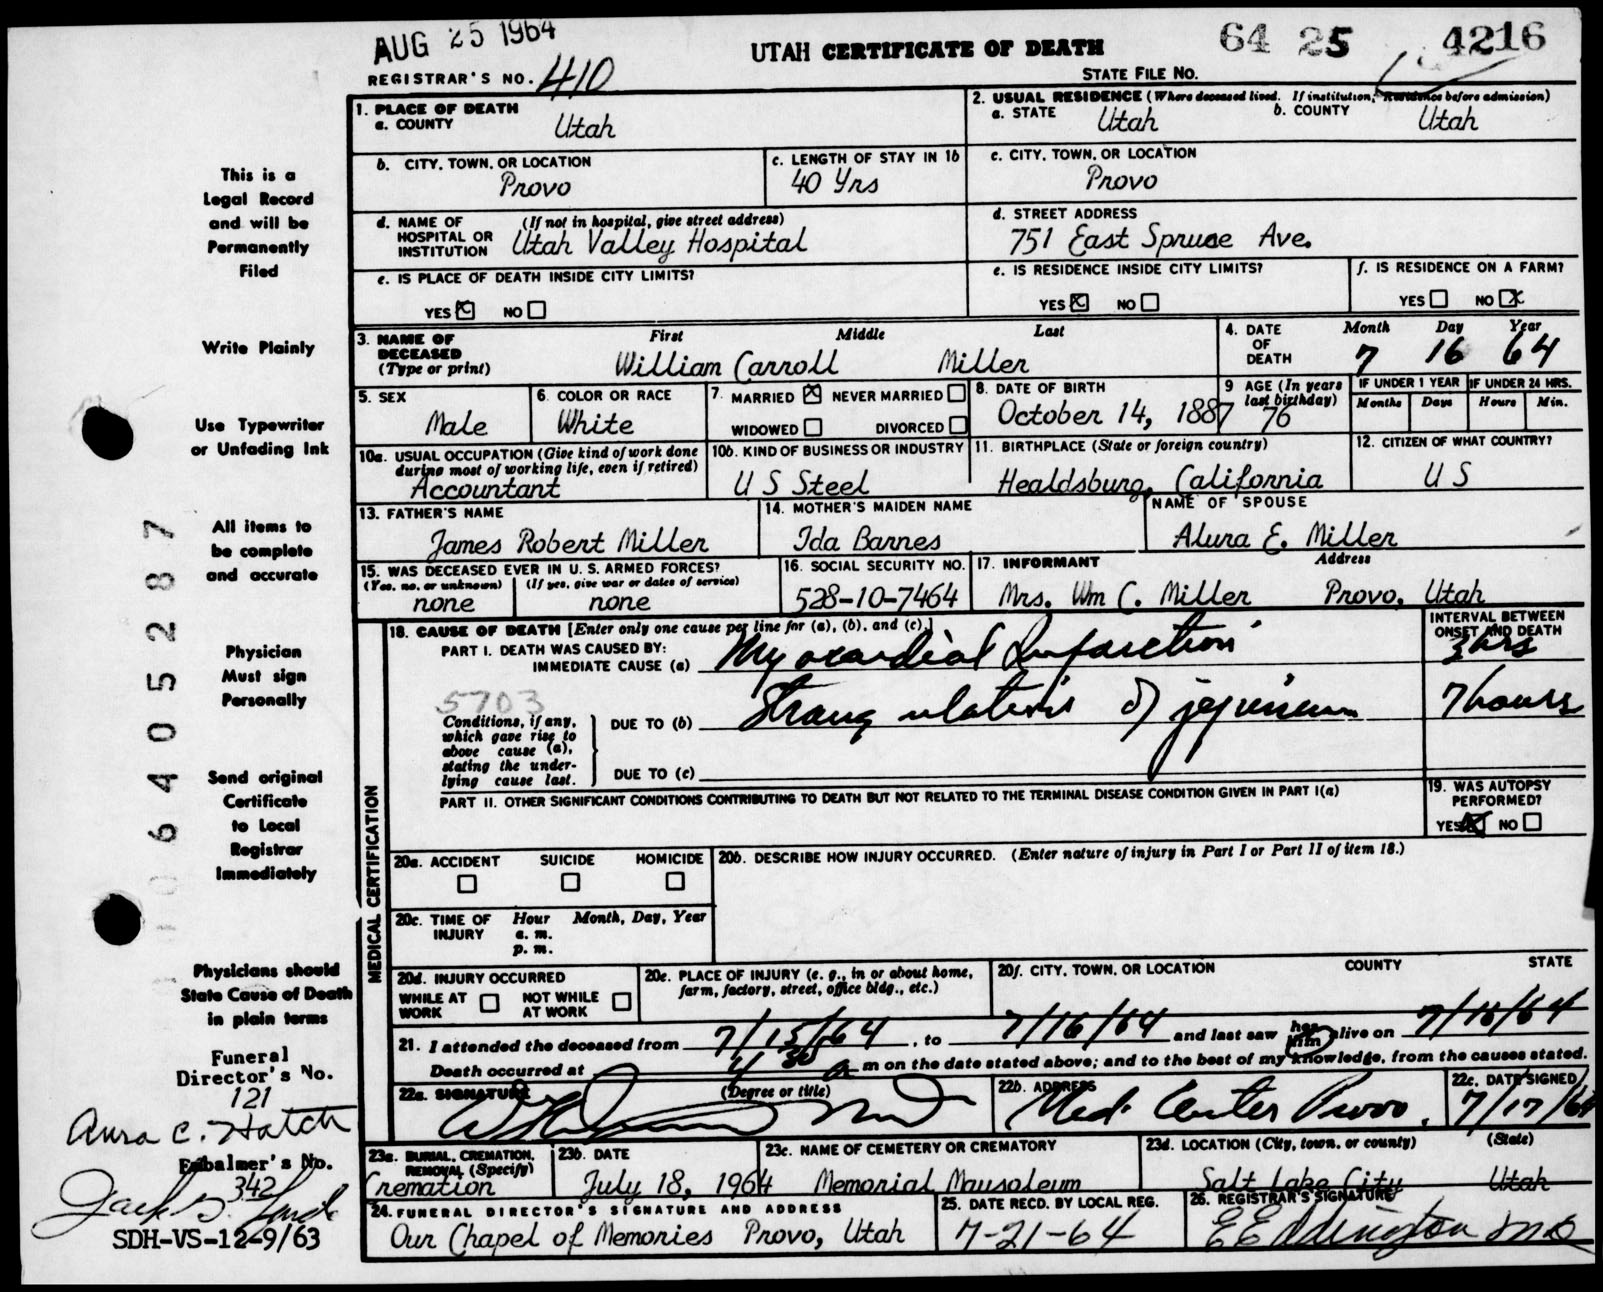 AUG 25 1964
UTAH CERTIFICATE OF DEATH
64 25 4216
REGISTRAR'S NO. 410
STATE FILE No.
1. PLACE OF DEATH
a. COUNTY Utah
2. USUAL RESIDENCE (Where deceased lived. If institution, Residence before admission)
a. STATE Utah b. COUNTY Utah
b. CITY, TOWN, OR LOCATION Provo
c. LENGTH OF STAY IN 1b 40 Yrs
c. CITY, TOWN, OR LOCATION Provo
d. NAME OF HOSPITAL OR INSTITUTION (If not in hospital, give street address) Utah Valley Hospital
d. STREET ADDRESS 751 East Spruce Ave.
e. IS PLACE OF DEATH INSIDE CITY LIMITS?
YES NO
e. IS RESIDENCE INSIDE CITY LIMITS?
YES NO
f. IS RESIDENCE ON A FARM?
YES NO
3. NAME OF DECEASED (Type or print) First Middle Last
William Carroll Miller
4. DATE OF DEATH Month Day Year
7 16 64
5. SEX Male
6. COLOR OR RACE White
7. MARRIED NEVER MARRIED
WIDOWED DIVORCED
8. DATE OF BIRTH October 14, 1887
9 AGE (In years last birthday) 76
IF UNDER 1 YEAR Months Days
IF UNDER 24 HRS. Hours Min.
10a. USUAL OCCUPATION (Give kind of work done during most of working life, even if retired) Accountant
10b. KIND OF BUSINESS OR INDUSTRY U S Steel
11. BIRTHPLACE (State or foreign country) Healdsburg, California
12. CITIZEN OF WHAT COUNTRY? U S
13. FATHER'S NAME James Robert Miller
14. MOTHER'S MAIDEN NAME Ida Barnes
NAME OF SPOUSE Alura E. Miller
15. WAS DECEASED EVER IN U. S. ARMED FORCES?
(Yes, no, or unknown) none (If yes, give war or dates of service) none
16. SOCIAL SECURITY NO. 528-10-7464
17. INFORMANT Address
Mrs. Wm C. Miller Provo, Utah
MEDICAL CERTIFICATION
18. CAUSE OF DEATH [Enter only one cause per line for (a), (b), and (c).]
INTERVAL BETWEEN ONSET AND DEATH
PART I. DEATH WAS CAUSED BY:
IMMEDIATE CAUSE (a) Myocardial Infarction 3 hrs
5703
Conditions, if any, which gave rise to above cause (a), stating the underlying cause last.
DUE TO (b) Strangulation of jejunum 7 hours
DUE TO (c)
PART II. OTHER SIGNIFICANT CONDITIONS CONTRIBUTING TO DEATH BUT NOT RELATED TO THE TERMINAL DISEASE CONDITION GIVEN IN PART I(a)
19. WAS AUTOPSY PERFORMED?
YES NO
20a. ACCIDENT SUICIDE HOMICIDE
20b. DESCRIBE HOW INJURY OCCURRED. (Enter nature of injury in Part I or Part II of item 18.)
20c. TIME OF INJURY Hour Month, Day, Year
a. m.
p. m.
20d. INJURY OCCURRED
WHILE AT WORK NOT WHILE AT WORK
20e. PLACE OF INJURY (e. g., in or about home, farm, factory, street, office bldg., etc.)
20f. CITY, TOWN, OR LOCATION COUNTY STATE
21. I attended the deceased from 7/15/64, to 7/16/64 and last saw her him alive on 7/16/64
Death occurred at 4 30 a m on the date stated above; and to the best of my knowledge, from the causes stated.
22a. SIGNATURE (Degree or title)
22b. ADDRESS Med. Center Provo.
22c. DATE SIGNED 7/17/64
23a. BURIAL, CREMATION, REMOVAL (Specify) Cremation
23b. DATE July 18, 1964
23c. NAME OF CEMETERY OR CREMATORY Memorial Mausoleum
23d. LOCATION (City, town, or county) (State)
Salt Lake City Utah
24. FUNERAL DIRECTOR'S SIGNATURE AND ADDRESS
Our Chapel of Memories Provo, Utah
25. DATE RECD. BY LOCAL REG. 7-21-64
26. REGISTRAR'S SIGNATURE E E Eddington MD
This is a
Legal Record
and will be
Permanently
Filed
Write Plainly
Use Typewriter
or Unfading Ink
All items to
be complete
and accurate
Physician
Must sign
Personally
Send original
Certificate
to Local
Registrar
Immediately
Physicians should
State Cause of Death
in plain terms
Funeral
Director's No.
121
Aura C. Hatch
Embalmer's No.
342
SDH-VS-12-9/63
006405287